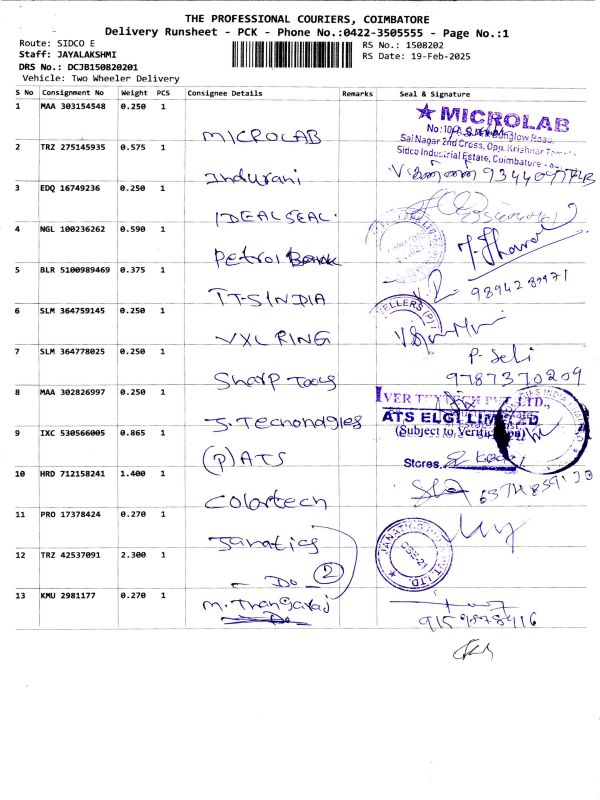 THE PROFESSIONAL COURIERS, COIMBATORE
Delivery Runsheet - PCK - Phone No.:0422-3505555 - Page No.:1
Route: SIDCO E
RS No.: 1508202
Staff: JAYALAKSHMI
RS Date: 19-Feb-2025
DRS No.: DCJB150820201
Vehicle: Two Wheeler Delivery
S No Consignment No Weight PCS Consignee Details Remarks Seal & Signature
1 MAA 303154548 0.250 1
MICROLAB
★ MICROLAB
Sai Nagar 2nd Cross, Opp. Krishnar
Sidco Industrial Estate, Coimbatore
2 TRZ 275145935 0.575 1
Indurani
3 EDQ 16749236 0.250 1
IDEAL SEAL.
4 NGL 100236262 0.590 1
Petrol Bank
5 BLR 5100989469 0.375 1
ITSINDIA
6 SLM 364759145 0.250 1
VXL RING
7 SLM 364778025 0.250 1
P. Seli
Sharp Tools
9787370209
8 MAA 302826997 0.250 1
ATS ELGI LIMITED
(Subject to Verification)
9 IXC 530566005 0.865 1
(P) ATS
Stores.
10 HRD 712158241 1.400 1
Colortech
11 PRO 17378424 0.270 1
Janatics
12 TRZ 42537091 2.300 1
- Do - 2
13 KMU 2981177 0.270 1
M. Thangaraj